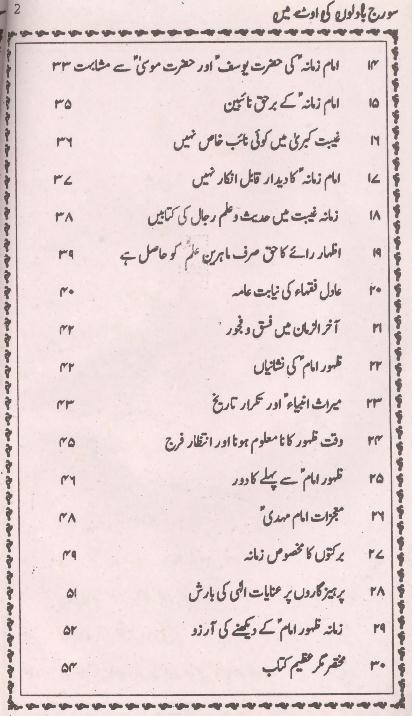 2 سورج بادلوں کی اوٹ میں
۱۴ امام زمانہؑ کی حضرت یوسفؑ اور حضرت موسیٰؑ سے مشابہت ۳۳
۱۵ امام زمانہؑ کے برحق نائبین ۳۵
۱۶ غیبت کبریٰ میں کوئی نائب خاص نہیں ۳۶
۱۷ امام زمانہؑ کا دیدار قابل انکار نہیں ۳۷
۱۸ زمانہ غیبت میں حدیث و علم رجال کی کتابیں ۳۸
۱۹ اظہار رائے کا حق صرف ماہرین علم کو حاصل ہے ۳۹
۲۰ عادل فقہاء کی نیابت عامہ ۴۰
۲۱ آخر الزمان میں فسق و فجور ۴۲
۲۲ ظہور امامؑ کی نشانیاں ۴۲
۲۳ میراث انبیاءؑ اور تکرار تاریخ ۴۳
۲۴ وقت ظہور کا نامعلوم ہونا اور انتظار فرج ۴۵
۲۵ ظہور امامؑ سے پہلے کا دور ۴۶
۲۶ معجزات امام مہدیؑ ۴۸
۲۷ برکتوں کا مخصوص زمانہ ۴۹
۲۸ پرہیزگاروں پر عنایات الٰہی کی بارش ۵۱
۲۹ زمانہ ظہور امامؑ کے دیکھنے کی آرزو ۵۲
۳۰ مختصر مگر عظیم کتاب ۵۴